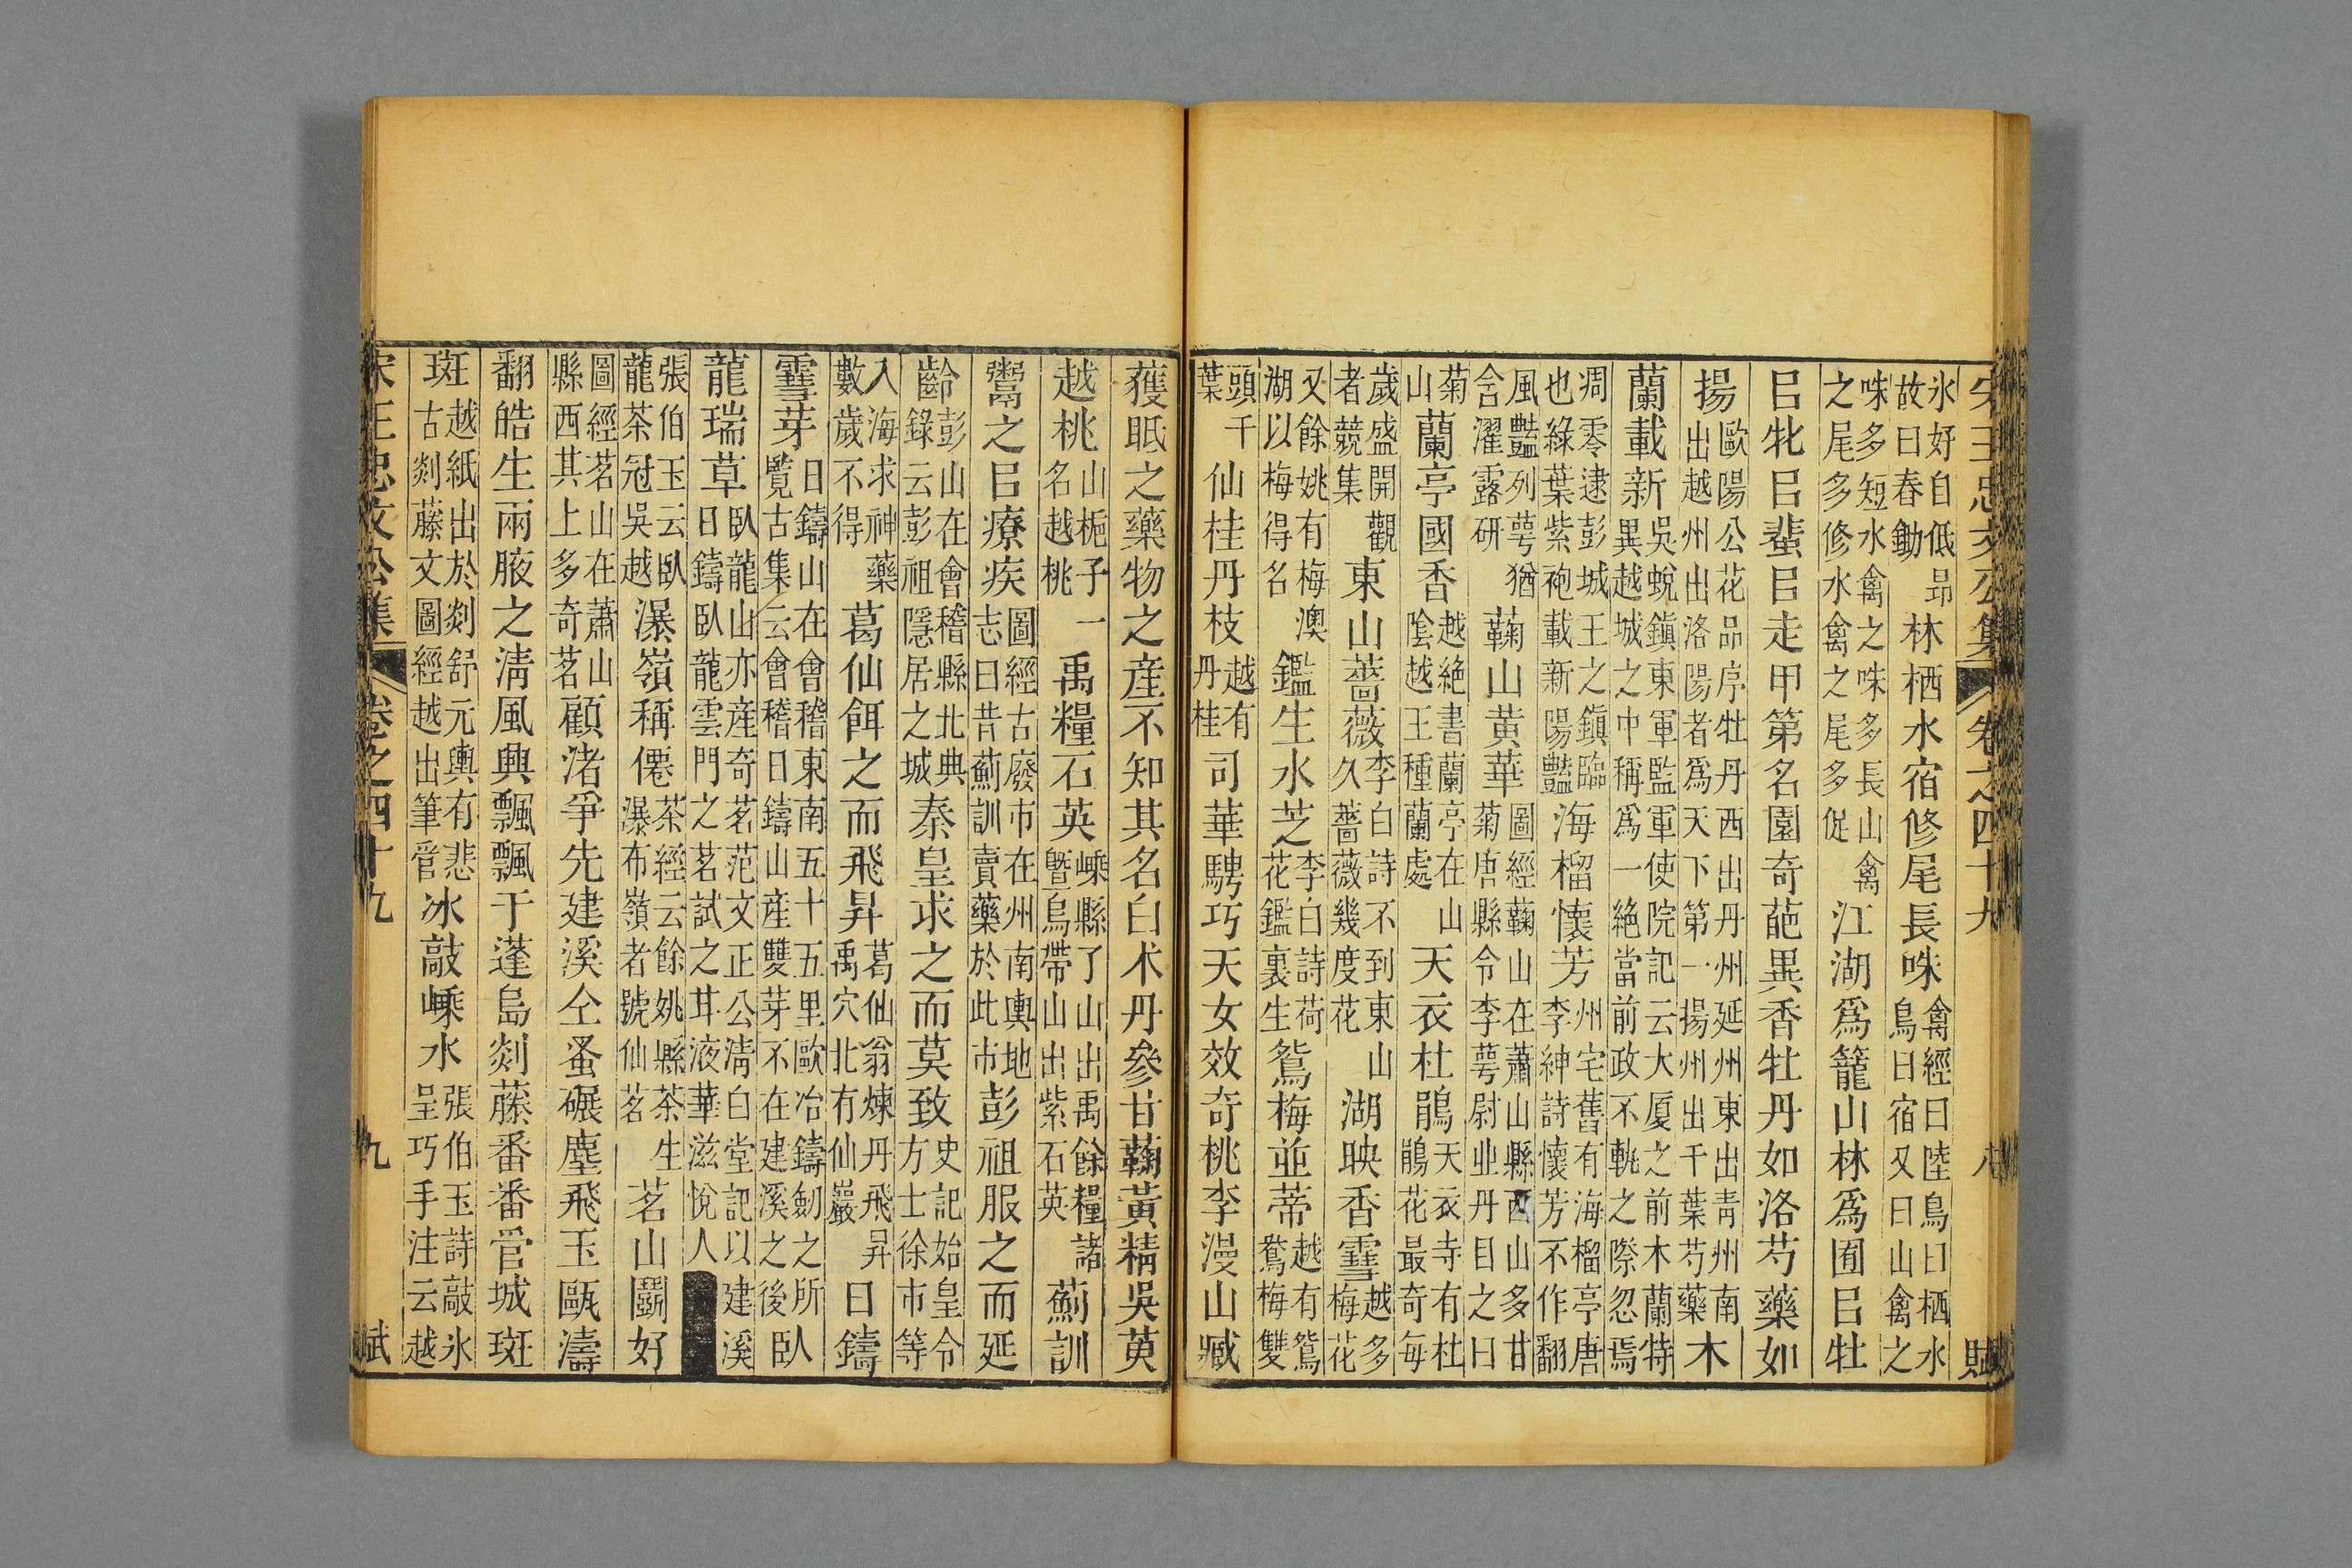 宋王忠文公集 卷之四十九 八 賦
氷好自低昻故曰春鋤林栖水宿修尾長咮禽經曰陸鳥曰栖水鳥曰宿又曰山禽之
咮多短水禽之咮多長山禽之尾多修水禽之尾多促江湖爲籠山林爲囿㠯牡
㠯牝㠯蜚㠯走甲第名園奇葩異香牡丹如洛芍藥如
揚歐陽公花品序牡丹西出丹州延州東出靑州南出越州出洛陽者爲天下第一揚州出千葉芍藥木
蘭載新吳蛻鎭東軍監軍使院記云大厦之前木蘭特異越城之中稱爲一絶當前政不軌之際忽焉
凋零逮彭城王之鎭臨也綠葉紫袍載新陽豔海榴懷芳州宅舊有海榴亭唐李紳詩懷芳不作翻
風豔列萼猶含濯露研鞠山黃華圖經鞠山在蕭山縣西山多甘菊唐縣令李萼尉丹目之曰
菊山蘭亭國香越絶書蘭亭在山陰越王種蘭處天衣杜鵑天衣寺有杜鵑花最奇每
歲盛開觀者競集東山薔薇李白詩不到東山久薔薇幾度花湖映香雪越多梅花
又餘姚有梅澳湖以梅得名鑑生水芝李白詩荷花鑑裏生鴛梅並蒂越有鴛鴦梅雙
頭千葉仙桂丹枝越有丹桂司華騁巧天女效奇桃李漫山臧
蒦眡之藥物之產不知其名白术丹參甘鞠黃精吳萸
越桃山梔子一名越桃禹糧石英嵊縣了山出禹餘糧諸曁烏帶山出紫石英薊訓
鬻之㠯療疾圖經古廢市在州南輿地志曰昔薊訓賣藥於此市彭祖服之而延
齡彭山在會稽縣北典錄云彭祖隱居之城秦皇求之而莫致史記始皇令方士徐市等
入海求神藥數歲不得葛仙餌之而飛昇葛仙翁煉丹飛昇禹穴北有仙巖日鑄
雪芽日鑄山在會稽東南五十五里歐冶鑄劒之所覽古集云會稽日鑄山産雙芽不在建溪之後臥
龍瑞草臥龍山亦産奇茗范文正公淸白堂記以建溪日鑄臥龍雲門之茗試之甘液華滋悅人
張伯玉云臥龍茶冠吳越瀑嶺稱僊茶經云餘姚縣茶生瀑布嶺者號仙茗茗山鬭好
圖經茗山在蕭山縣西其上多奇茗顧渚爭先建溪仝蚤碾塵飛玉甌濤
翻皓生兩腋之淸風興飄飄于蓬島剡藤番番管城斑
斑越紙出於剡舒元輿有悲古剡藤文圖經越出筆管冰敲嵊水張伯玉詩敲氷呈巧手注云越
宋王忠文公集 卷之四十九 九 賦